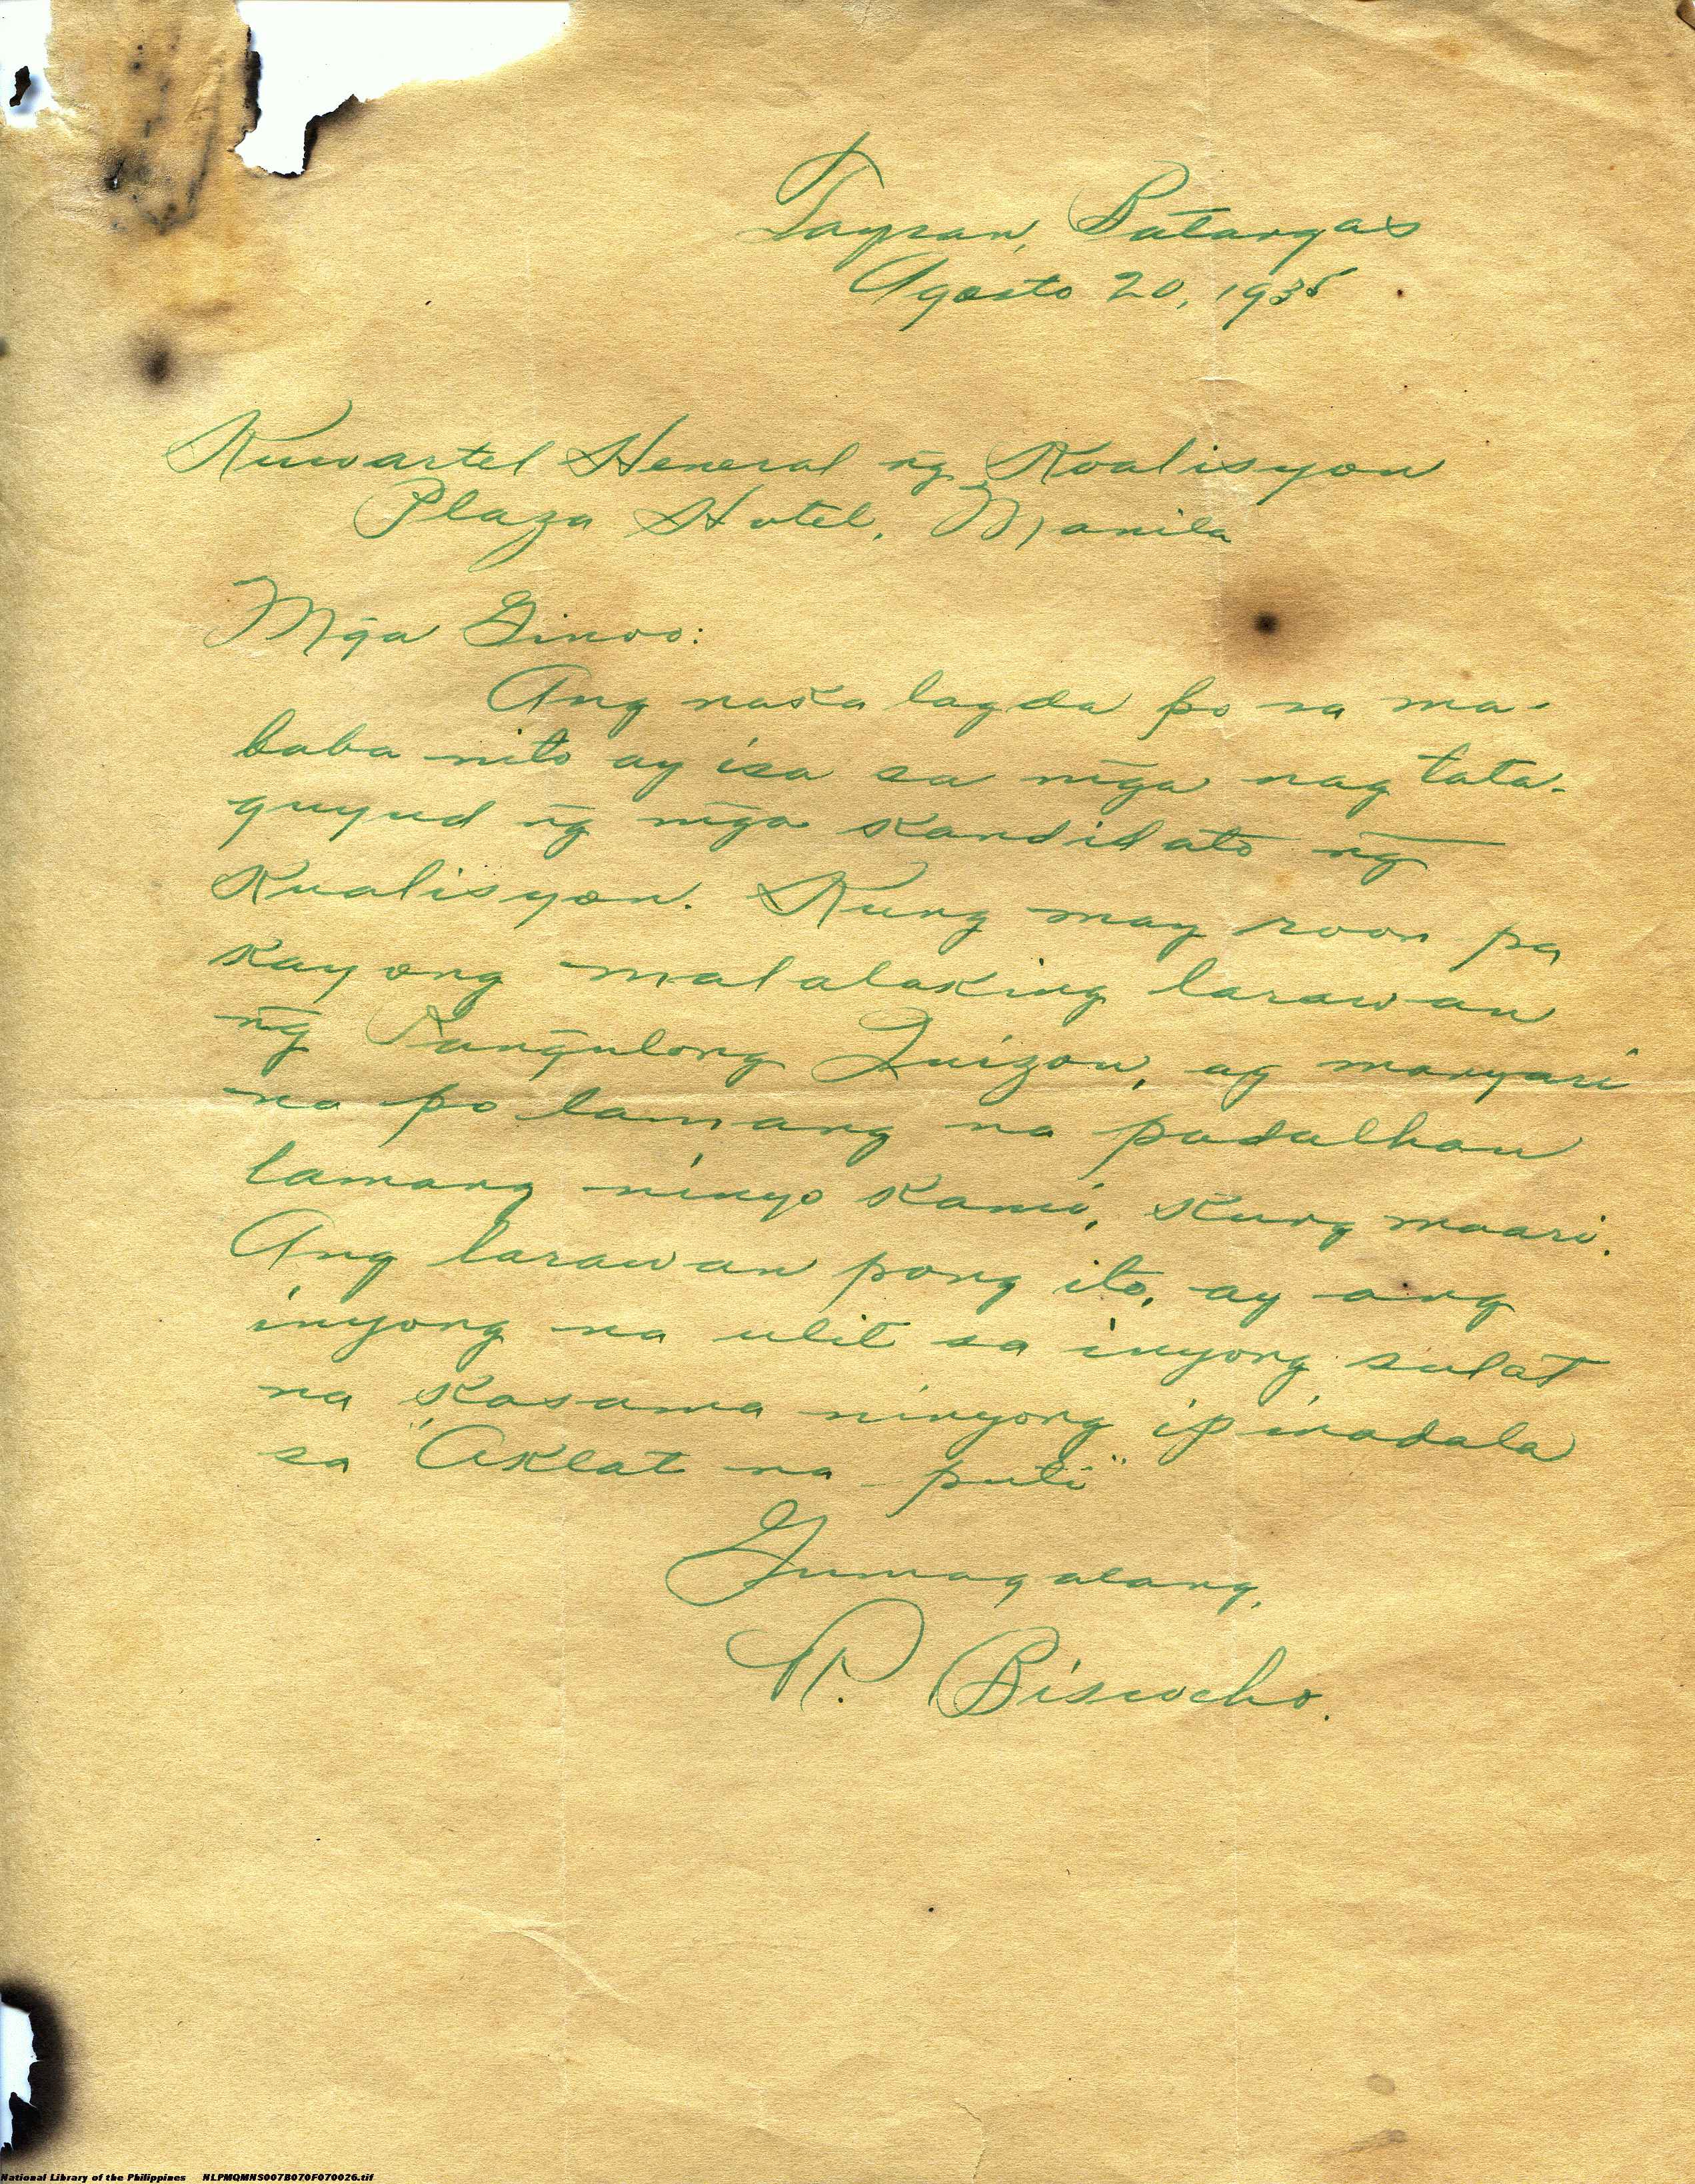 Taysan, Batangas
Agosto 20, 1935
Kuwartel Heneral ng̃ Koalisyon
Plaza Hotel, Manila
Mg̃a Ginoo:
Ang naka lagda po sa ma-
baba nito ay isa sa mg̃a nag tata-
guyud ng̃ mg̃a kandidato ng̃
Kualisyon. Kung may roon pa
kayong malalaking larawan
ng̃ Pang̃ulong Quizon, ay mangyari
na po lamang na padalhan
lamang ninyo kami, kung maari.
Ang larawan pong ito, ay ang
inyong na ulit sa inyong sulat
na kasama ninyong ipinadala
sa "Aklat na puti"
Gumagalang,
P. Biscocho.
National Library of the Philippines NLPMQMNS007B070F070026.tif